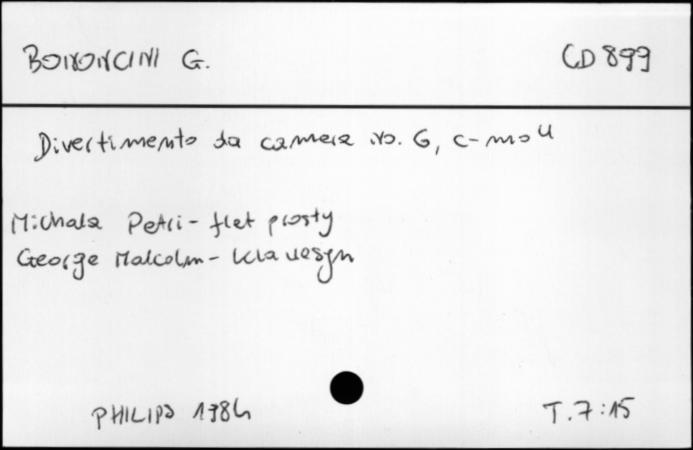 BONONCINI G. CD 899
Divertimento da camera no. 6, c-moll
Michala Petri - flet prosty
George Malcolm - klawesyn
PHILIPS 1984 T. 7:15